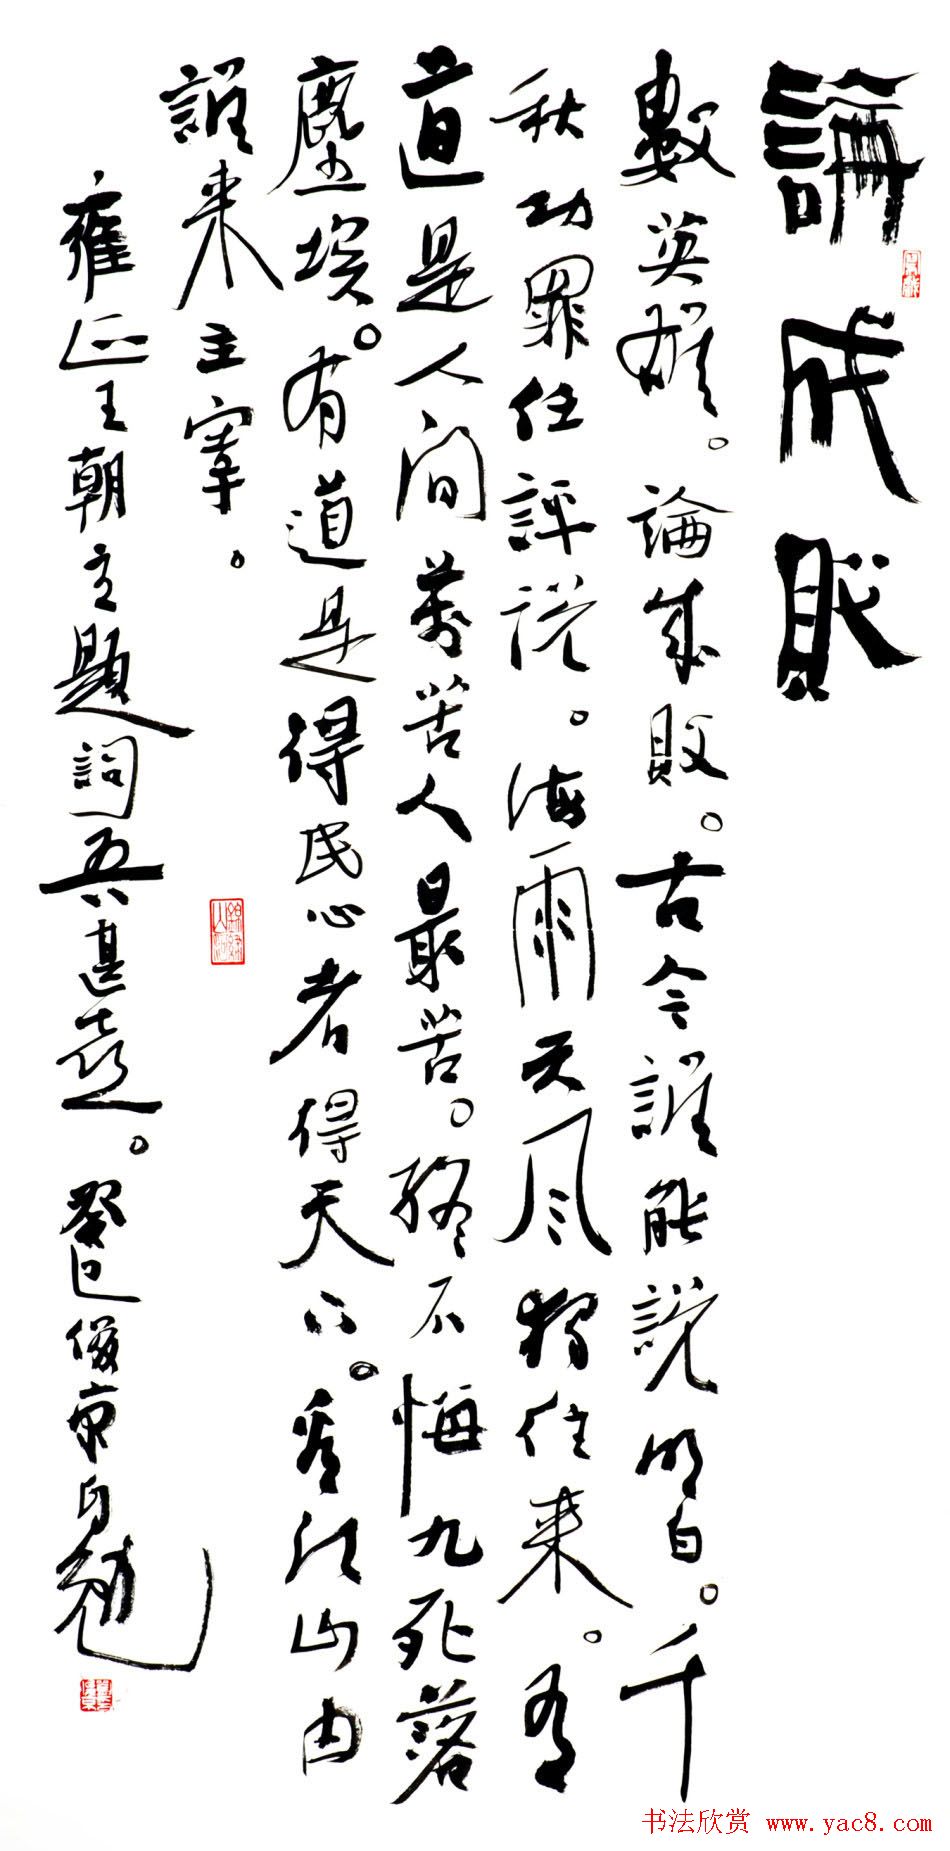 論成敗
數英雄。論成敗。古今誰能說明白。千
秋功罪任評說。海雨天風獨往來。有
道是人間萬苦人最苦。終不悔九死落
塵埃。有道是得民心者得天下。看江山由
誰來主宰。
雍正王朝主題詞吾甚喜。癸巳俊京自勉
书法欣赏 www.yac8.com